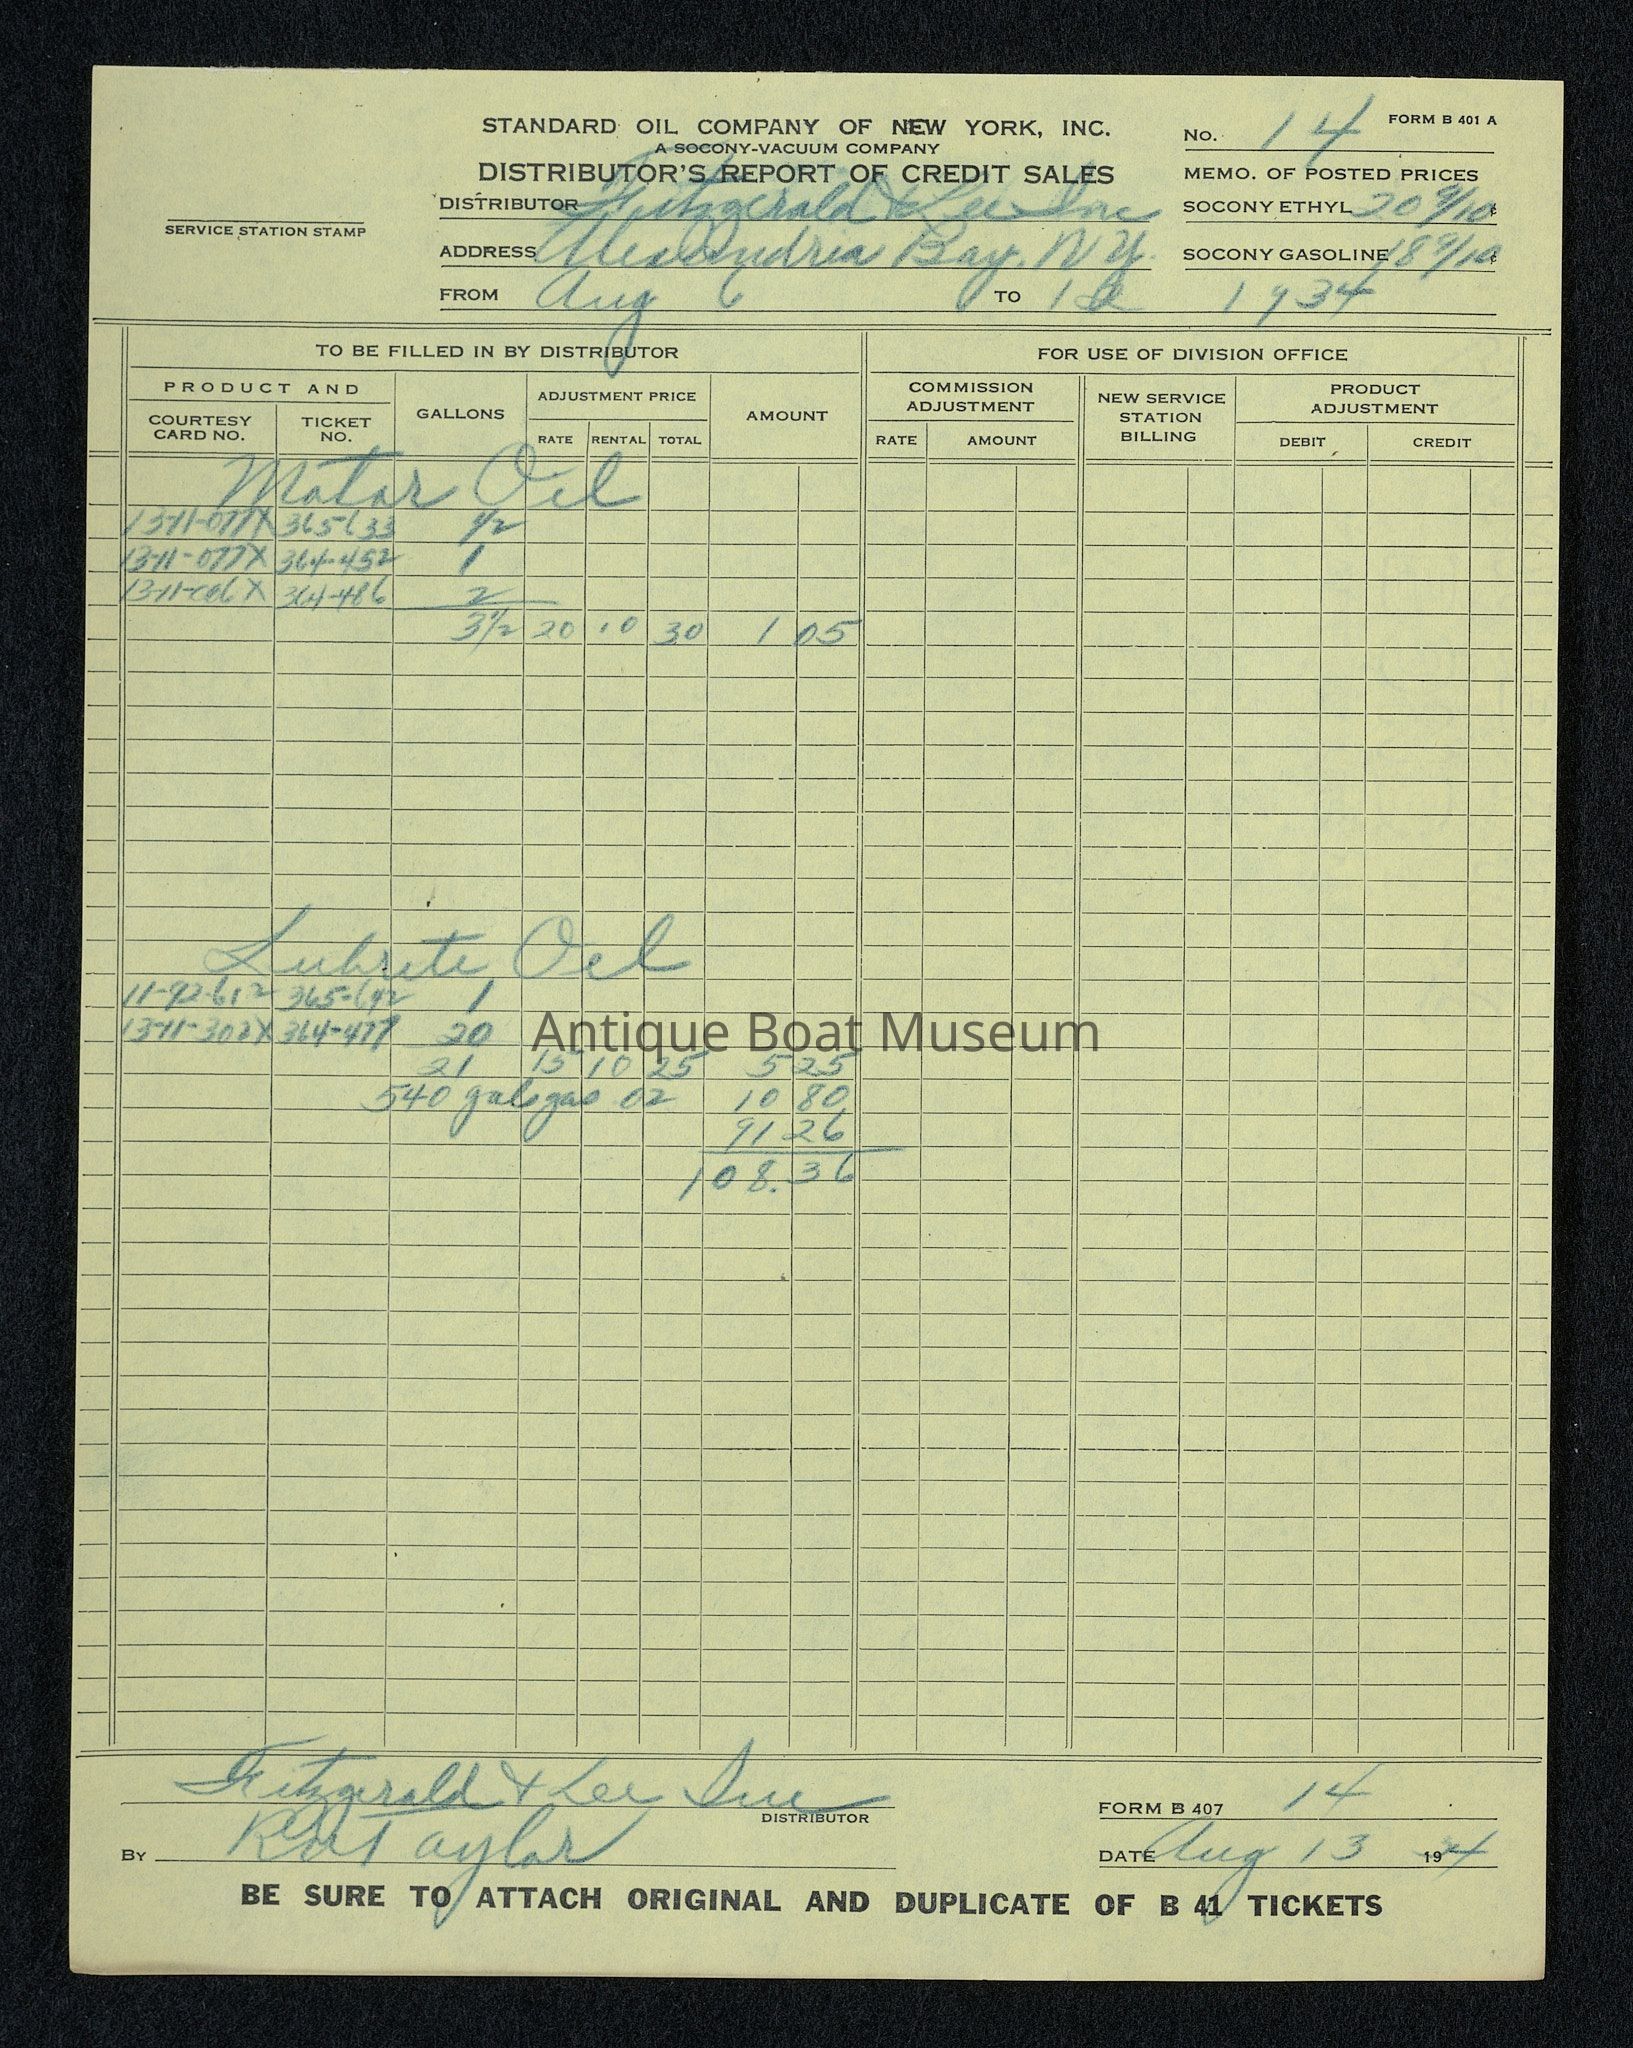 FORM B 401 A
STANDARD OIL COMPANY OF NEW YORK, INC.
No. 14
A SOCONY-VACUUM COMPANY
DISTRIBUTOR'S REPORT OF CREDIT SALES
MEMO. OF POSTED PRICES
DISTRIBUTOR Fitzgerald & Lee Inc
SOCONY ETHYL 20 9/10 ¢
SERVICE STATION STAMP
ADDRESS Alexandria Bay. N Y.
SOCONY GASOLINE 18 9/10 ¢
FROM Aug 6 TO 12 1934
TO BE FILLED IN BY DISTRIBUTOR FOR USE OF DIVISION OFFICE
PRODUCT AND GALLONS ADJUSTMENT PRICE AMOUNT COMMISSION ADJUSTMENT NEW SERVICE STATION BILLING PRODUCT ADJUSTMENT
COURTESY CARD NO. TICKET NO. RATE RENTAL TOTAL RATE AMOUNT DEBIT CREDIT
Motor Oil
13-11-077X 365-633 1/2
13-11-077X 364-452 1
13-11-006X 364-486 2
3 1/2 20 10 30 1 05
Lubrite Oil
11-92-612 365-692 1
13-11-302X 364-477 20
Antique Boat Museum
21 15 10 25 5 25
540 gals gas 02 10 80
91 26
108.36
Fitzgerald & Lee Inc
DISTRIBUTOR
FORM B 407 14
BY Robt Taylor
DATE Aug 13 1934
BE SURE TO ATTACH ORIGINAL AND DUPLICATE OF B 41 TICKETS